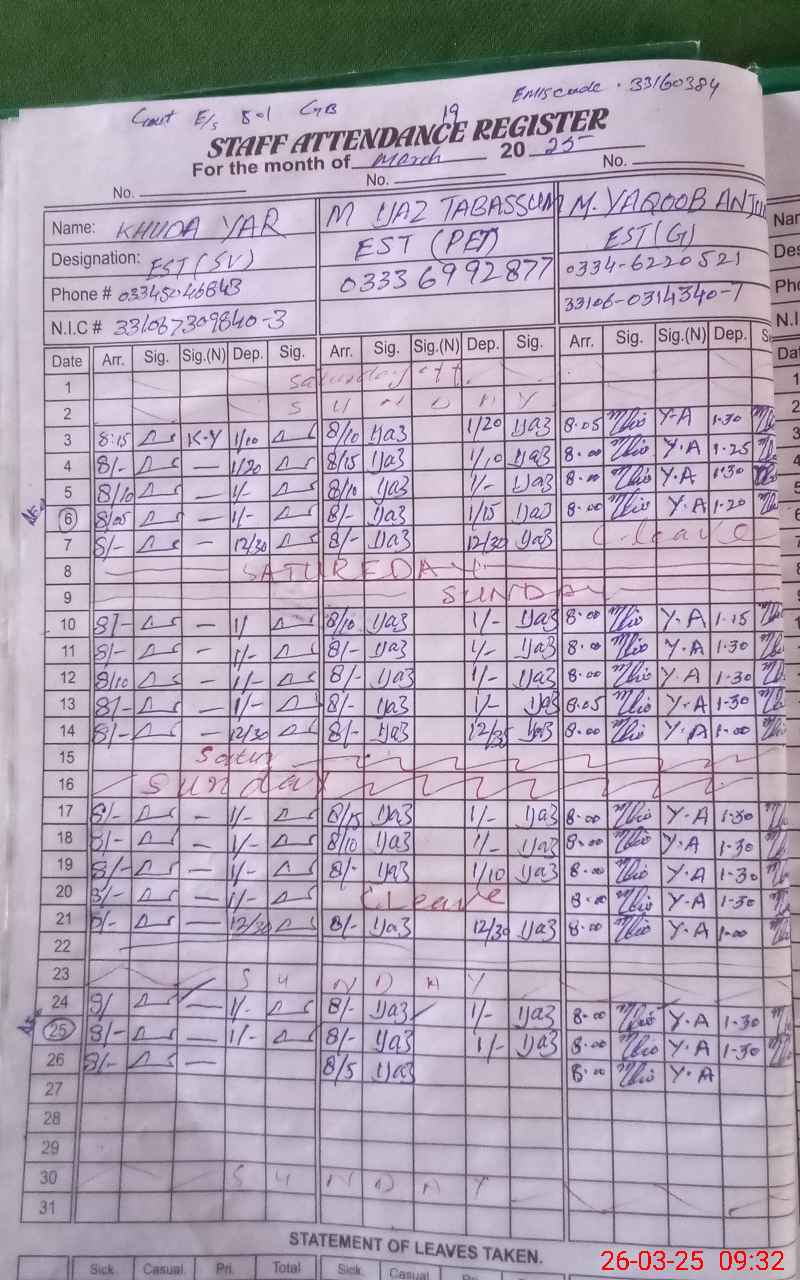 Govt E/s 801 GB 19 EMIS code . 33160384
STAFF ATTENDANCE REGISTER
For the month of March 20 25
No. No. No.
Name: KHUDA YAR M IJAZ TABASSUM M. YAQOOB ANJU
Designation: EST (SV) EST (PET) EST (G)
Phone # 03345046843 0333 6992877 0334-6220521
N.I.C # 331067309840-3 33106-0314340-7
Date Arr. Sig. Sig.(N) Dep. Sig. Arr. Sig. Sig.(N) Dep. Sig. Arr. Sig. Sig.(N) Dep.
1 Saturday off
2 S U N D A Y
3 8:15 K-Y 1/10 8/10 Ijaz 1/20 Ijaz 8.05 Y-A 1-30
4 8/- — 1/20 8/15 Ijaz 1/10 Ijaz 8.00 Y.A 1-25
5 8/10 — 1/- 8/10 Ijaz 1/- Ijaz 8.00 Y.A 1-30
6 8/05 — 1/- 8/- Ijaz 1/15 Ijaz 8.00 Y.A 1-20
7 8/- - 12/30 8/- Ijaz 12/30 Ijaz C leave
8 SATUREDAY
9 SUNDAY
10 8/- — 1/ 8/10 Ijaz 1/- Ijaz 8.00 Y.A 1-15
11 8/- — 1/- 8/- Ijaz 1/- Ijaz 8.00 Y.A 1-30
12 8/10 — 1/- 8/- Ijaz 1/- Ijaz 8.00 Y.A 1-30
13 8/- — 1/- 8/- Ijaz 1/- Ijaz 8.05 Y-A 1-30
14 8/- — 12/30 8/- Ijaz 12/35 Ijaz 8.00 Y.A 1-00
15 Satur
16 Sunday
17 8/- — 1/- 8/15 Ijaz 1/- Ijaz 8.00 Y.A 1-30
18 8/- — 1/- 8/10 Ijaz 1/- Ijaz 8.00 Y.A 1-30
19 8/- — 1/- 8/- Ijaz 1/10 Ijaz 8.00 Y.A 1-30
20 8/- — 1/- C leave 8.00 Y.A 1-30
21 8/- — 12/30 8/- Ijaz 12/30 Ijaz 8.00 Y.A 1-00
22
23 S U N D A Y
24 8/ — 1/- 8/- Ijaz 1/- Ijaz 8.00 Y.A 1-30
25 8/- — 1/- 8/- Ijaz 1/- Ijaz 8.00 Y.A 1-30
26 8/- — 8/5 Ijaz 8.00 Y.A
27
28
29
30 S U N D A Y
31
STATEMENT OF LEAVES TAKEN.
Sick Casual Pri. Total Sick. Casual
26-03-25 09:32